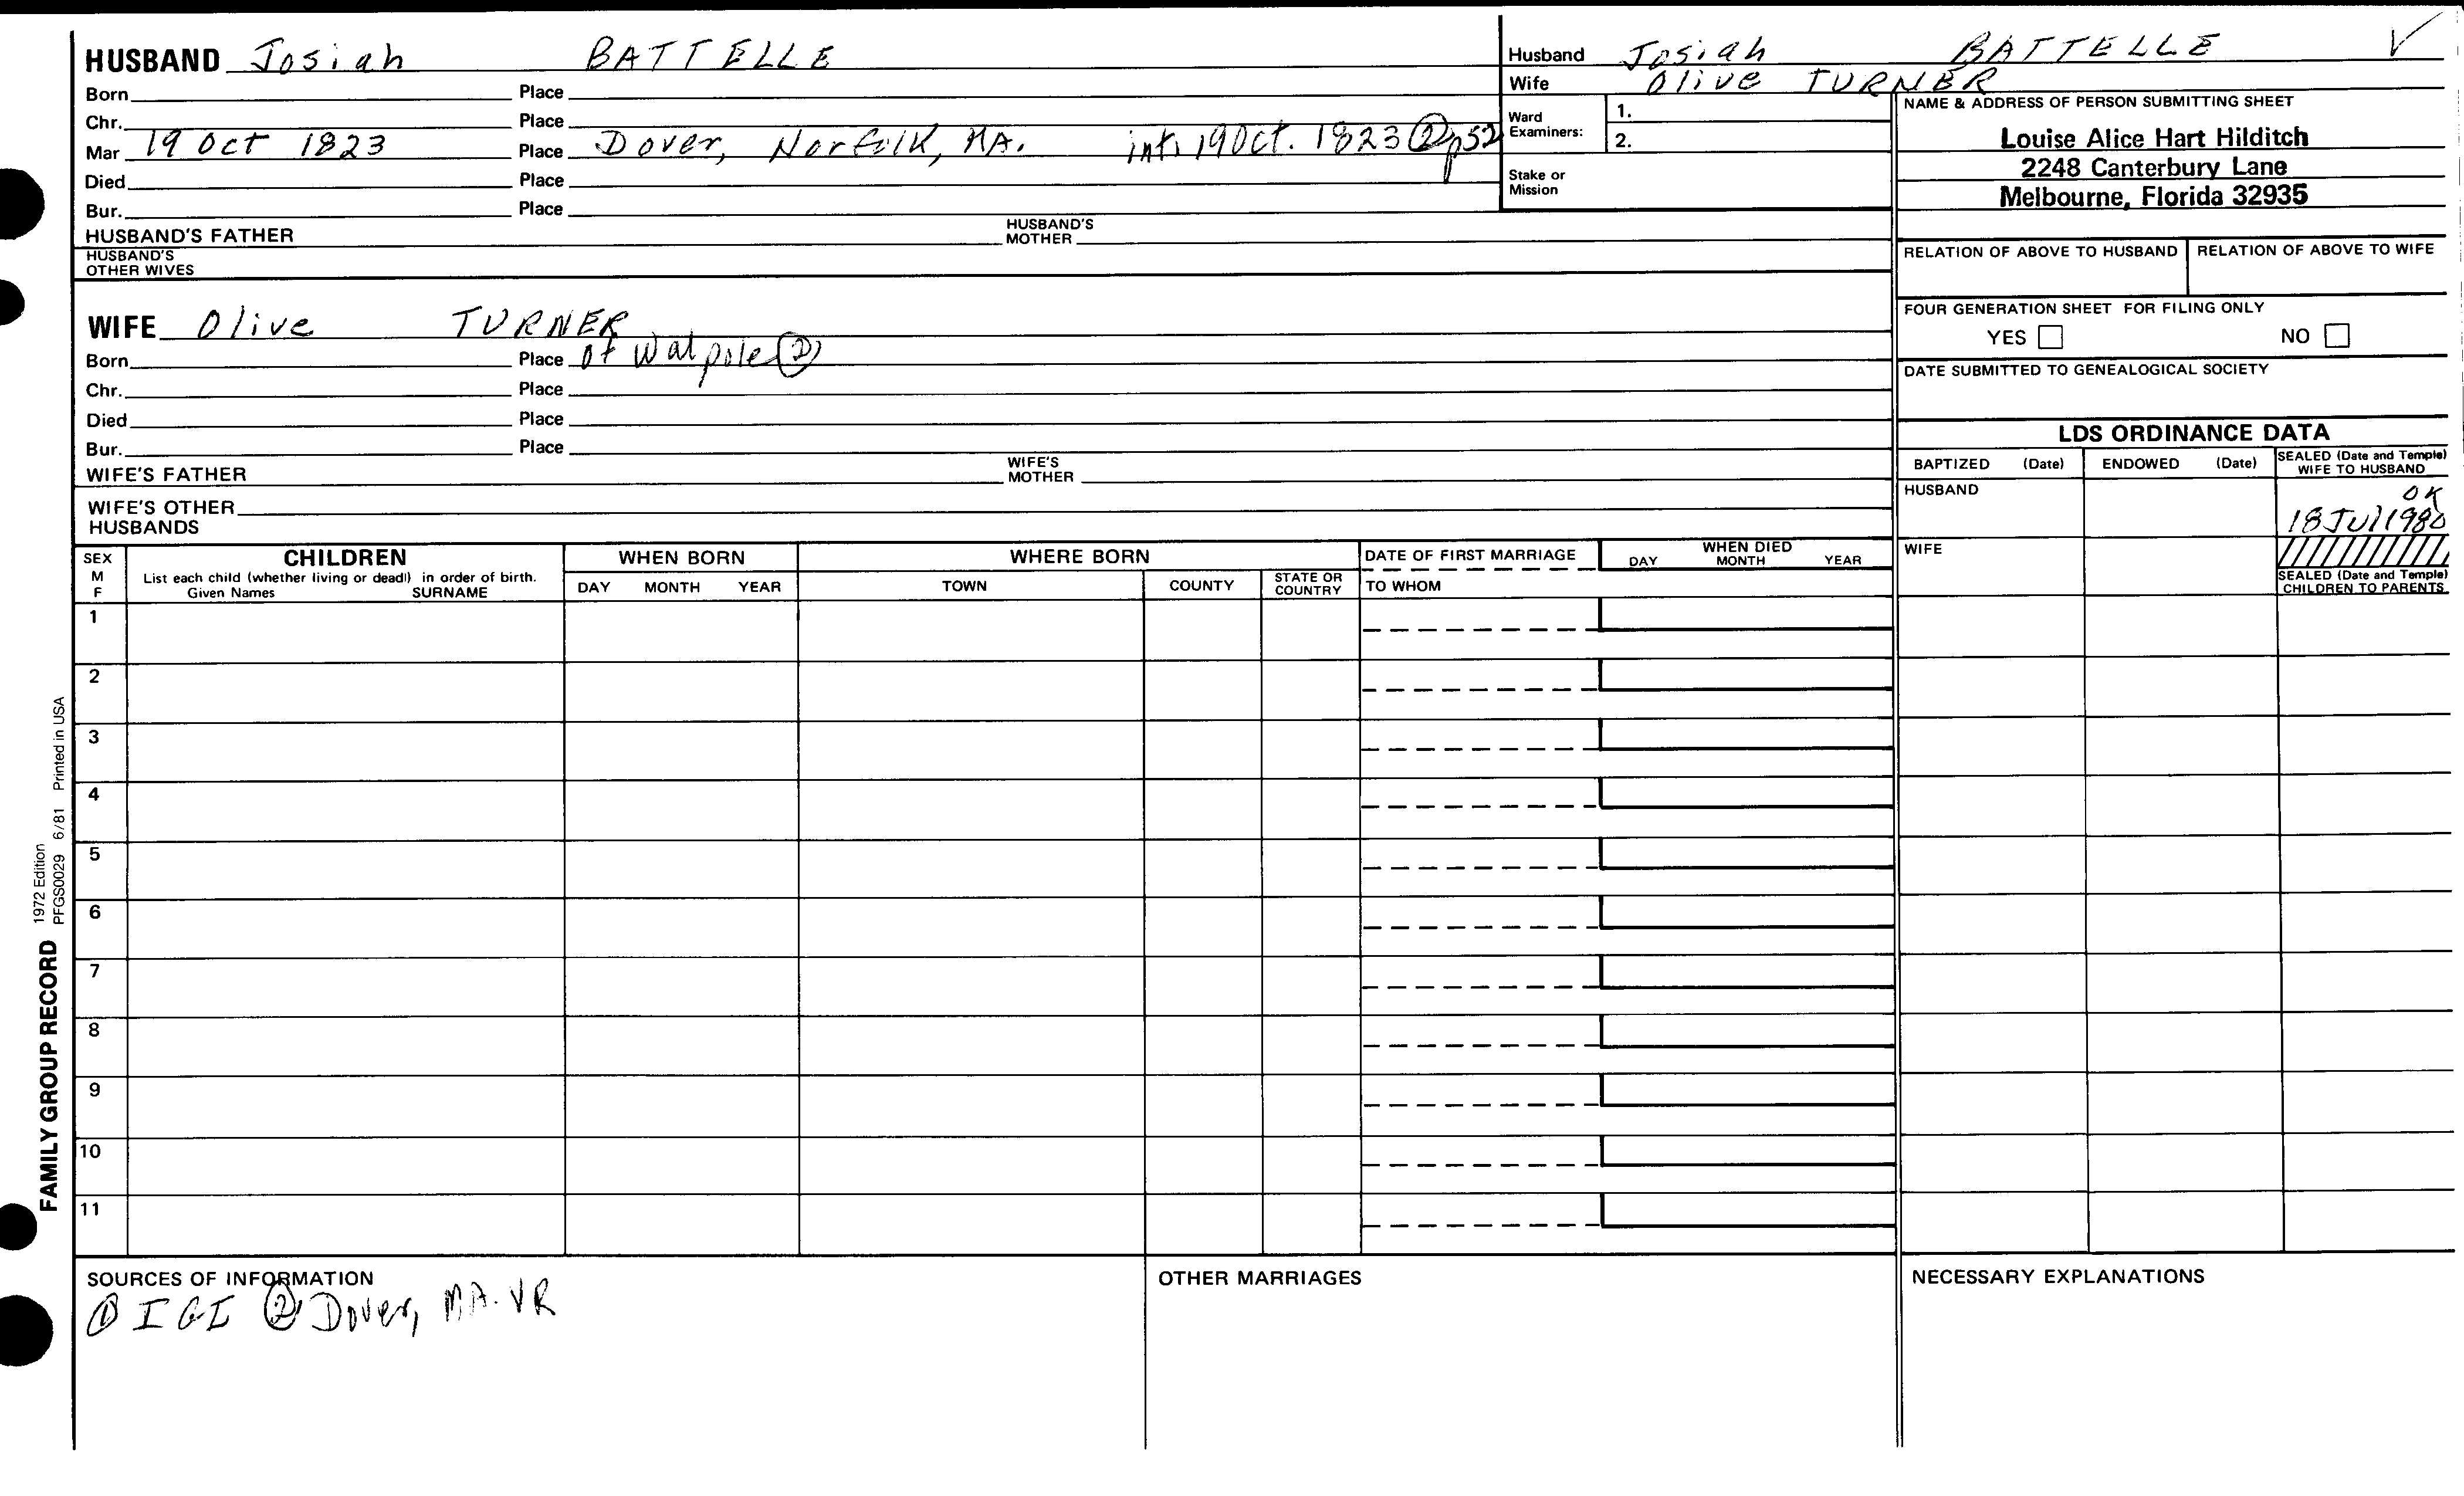 HUSBAND Josiah BATTELLE
Born Place
Chr. Place
Mar 19 Oct 1823 Place Dover, Norfolk, MA. int. 19 Oct. 1823 ② p52
Died Place
Bur. Place
HUSBAND'S FATHER HUSBAND'S MOTHER
HUSBAND'S OTHER WIVES
WIFE Olive TURNER
Born Place of Walpole ②
Chr. Place
Died Place
Bur. Place
WIFE'S FATHER WIFE'S MOTHER
WIFE'S OTHER HUSBANDS
Husband Josiah BATTELLE √
Wife Olive TURNER
Ward Examiners: 1.
2.
Stake or Mission
NAME & ADDRESS OF PERSON SUBMITTING SHEET
Louise Alice Hart Hilditch
2248 Canterbury Lane
Melbourne, Florida 32935
RELATION OF ABOVE TO HUSBAND RELATION OF ABOVE TO WIFE
FOUR GENERATION SHEET FOR FILING ONLY
YES NO
DATE SUBMITTED TO GENEALOGICAL SOCIETY
LDS ORDINANCE DATA
BAPTIZED (Date) ENDOWED (Date) SEALED (Date and Temple) WIFE TO HUSBAND
HUSBAND OK
18 Jul 1980
WIFE
SEALED (Date and Temple) CHILDREN TO PARENTS
SEX M F
CHILDREN
List each child (whether living or dead) in order of birth.
Given Names SURNAME
WHEN BORN
DAY MONTH YEAR
WHERE BORN
TOWN COUNTY STATE OR COUNTRY
DATE OF FIRST MARRIAGE
TO WHOM
WHEN DIED
DAY MONTH YEAR
1
2
3
4
5
6
7
8
9
10
11
SOURCES OF INFORMATION
① IGI ② Dover, MA. VR
OTHER MARRIAGES
NECESSARY EXPLANATIONS
FAMILY GROUP RECORD
1972 Edition
PFGS0029 6/81 Printed in USA